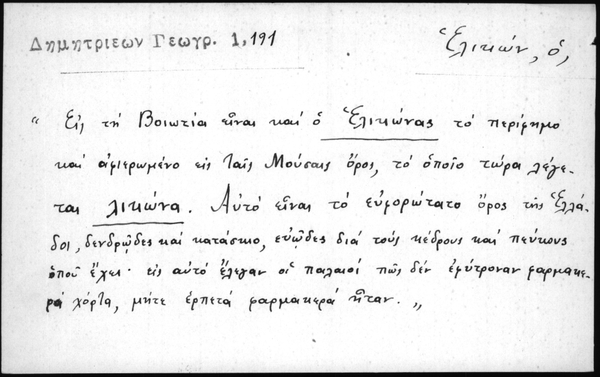 Δημητριεων Γεωγρ. 1,191
Ἑλικών, ὁ,
" Εἰς τὴ Βοιωτία εἶναι καὶ ὁ Ἑλικώνας τὸ περίφημο
καὶ ἀφιερωμένο εἰς ταῖς Μούσαις ὄρος, τὸ ὁποῖο τώρα λέγε-
ται λικώνα. Αὐτὸ εἶναι τὸ εὐμορώτατο ὄρος τῆς Ἑλλά-
δοι, δενδρῶδες καὶ κατάσκιο, εὐῶδες διὰ τοὺς κέδρους καὶ πεύκους
ὁποῦ ἔχει· εἰς αὐτὸ ἔλεγαν οἱ παλαιοὶ πῶς δὲν ἐφύτροναν φαρμακε-
ρὰ χόρτα, μήτε ἑρπετὰ φαρμακερὰ ἦταν. „